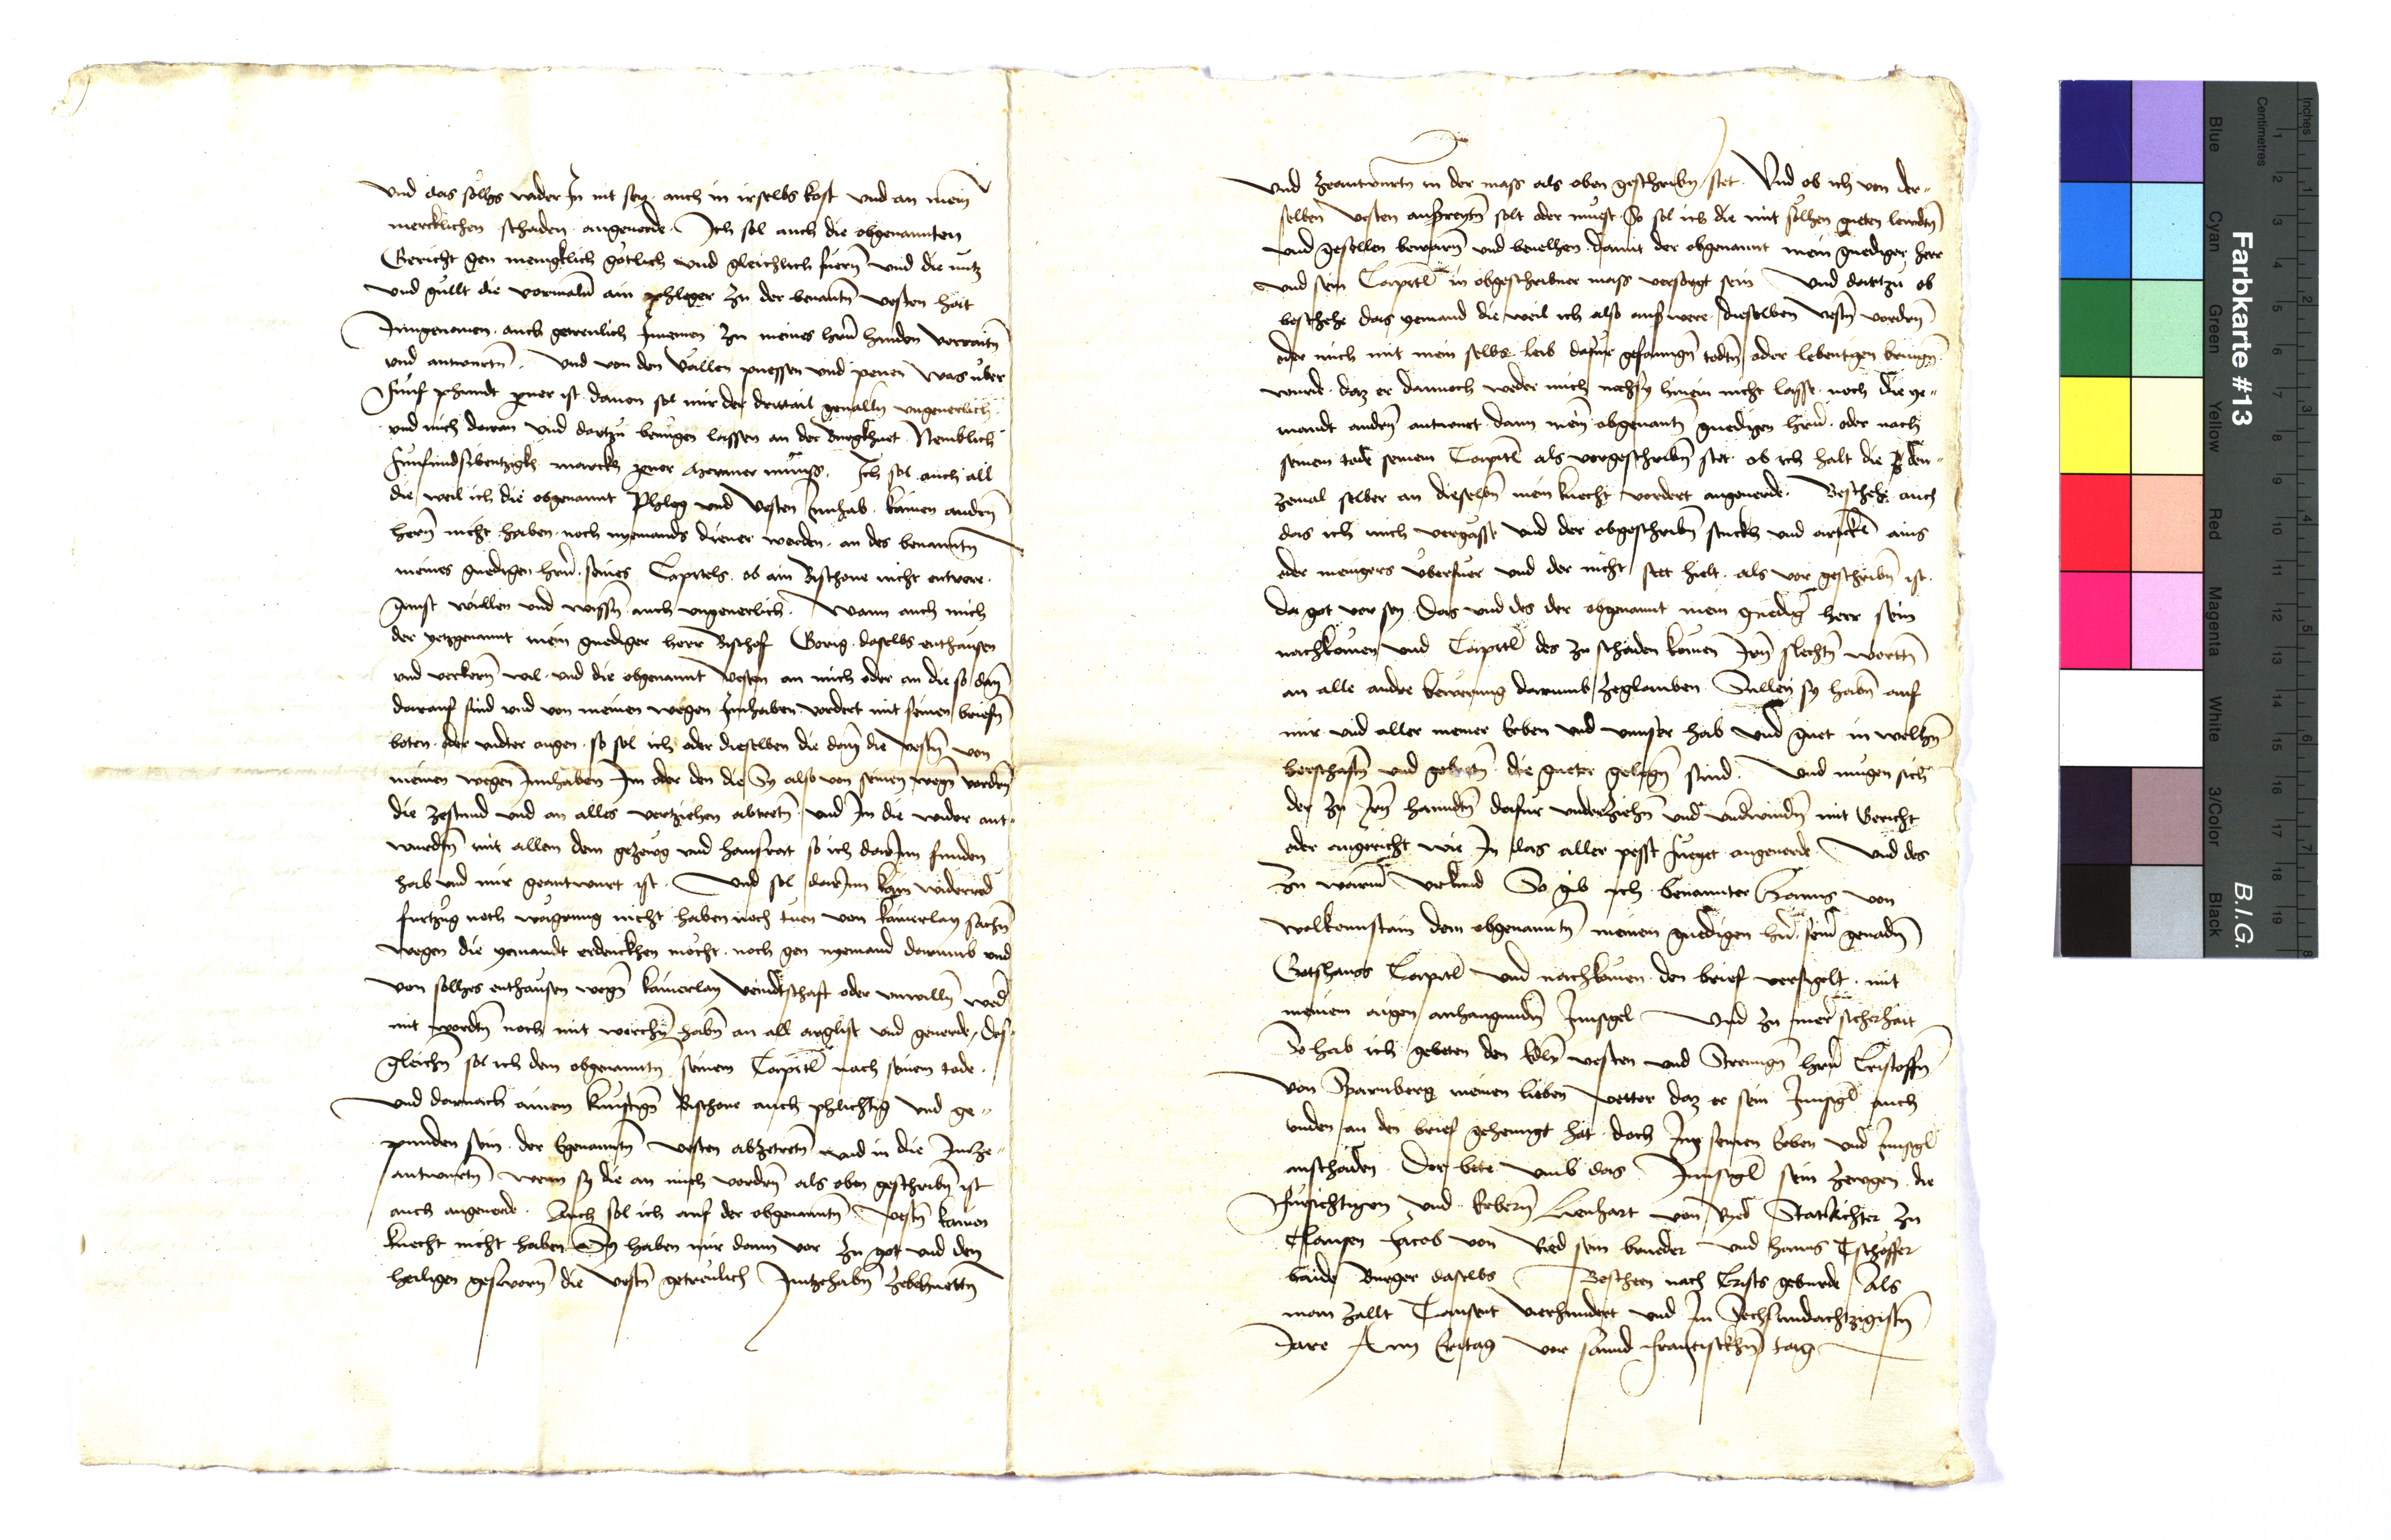 und das sölhs wider In nit sey auch in irselbs kost und an mein
mercklichen schaden angeuerde Ich sol auch die obgenannten
Gericht gen menigklich götlich und gleichlich füern und die nutz
und güllt die vormaln ain phleger zu der benantn vesten hat
Inngenomen auch getreulich Innemen zu meines hern handen verraitn
und antwurtn Und von den vällen puessen und penen was über
fünf phundt perner ist dauon sol mir der drittail geualln ungeuerlich
und mich daran und dartzu benügen lassen an der Burgkhuet Nemblich
fünfundsibentzigkh marckh perner Meraner münss Ich sol auch all
die weil ich die obgenannt Phleg und Vesten Innhab kainen andern
hern nicht haben noch nyemands diener werden an des benanntn
meines gnedigen hern seines Capitels ob ain Bischoue nicht entwere
gunst willen und wissn auch ungeuerlich Wann auch mich
der yetzgenannt mein gnediger herr Bischof Görig daselbs enthausen
und verkern wil und die obgenannt Vesten an mich oder an die so dann
darauf sind und von meinen wegen Innhaben vordert mit seinen briefn
boten oder under augen so sol ich oder dieselben die dann die Vestn von
meinen wegen Innhaben Im oder den die Sy also von seinen wegn vordern
die zestund und an alles vertziehen abtretn und In die wider ant
wurdtn mit allem dem gezewg und hausrat so ich darInn funden
hab und mir geantwurt ist Und sol darInn kain widerred
furtzug noch waigrung nicht haben noch tuen von kainerlay sachn
wegen die yemandt erdenckhen möcht noch gen nyemand darumb und
von sölhes enthausen wegn kainerlay veindtschaft oder unwilln weder
mit wordtn noch mit werchn habn an all arglist und geuerde Des
gleichn sol ich dem obgenanntn seinem Capitl nach seinem tode
und darnach ainem künftign Bischoue auch phlichtig und ge„
punden sein der Egenanntn Vesten abzetretn und in die Inze„
antwurtn wenn sy die an mich vordern als oben geschribn ist
auch angeuerde Auch sol ich auf der obgenanntn Vestn kainen
knecht nicht haben Sy haben mir dann vor zu got und den
heiligen gesworn die Vestn getreulich Inntzehabn zebehuettn
und zeantwurtn in der mass als oben geschribn stet Und ob ich von der„
selben Vesten aufreytn solt oder müest So sol ich die mit sölhen gueten lewdtn
und gesellen bewarn und beuelhen damit der obgenannt mein gnediger herr
und sein Capitl in obgeschribner mass versorgt sein Und dartzu ob
beschehe das yemand die weil ich also aus were dieselben Vestn vordern
oder mich mit mein selbs leib dafür gefanngn todtn oder lebentigen bringn
wurde daz er dannoch weder mich noch sy hinein nicht lasse noch die ye„
mandt andern antwurt dann mein obgenantn gnedigen hern oder nach
seinem tode seinem Capitl als vorgeschribn stet ob ich halt die den„
zemal selber an dieselbn mein knecht vordert angeuerde Beschehe auch
das ich mich vergässe und der obgeschribn stuckh und artickl ains
oder menigers überfuer und der nicht stet hielt als vor geschribn ist
da got vor sey Das und des der obgenannt mein gnedig herr sein
nachkomen und Capitl des zu schaden komen Iren slechtn wortn
an alle andre bewerung darumb zeglauben Sullen sy habn auf
mir und aller meiner Erben und unnser hab und guet in welhn
herschaftn und gebietn die gueter gelegn sind Und mugen sich
der zu Iren hanndtn dafür underziehn und underwindn mit Gericht
oder angericht wie In das aller pesst fueget angeuerde Und des
zu warm Urkund So gib ich benannter Hanns von
wolkennstain dem obgenanntn meinem gnedigen hern seim genadn
Gotshaws Capitl und nachkomen den brief versigelt mit
meinem aigen anhangundn Innsigel Und zu mer sicherhait
So hab ich gebeten den Edln vesten und Strenngn hern Cristoffn
von Sparnberg meinen lieben vetter daz er sein Innsigl auch
unden an den brief gehenngt hat doch Im seinen Erben und Innsigl
anschaden Der bete umb das Innsigl sein zewgen die
Fürsichtigen und Erbern Lienhart von Ried Statrichter zu
Clausen Jacob von Ried sein brueder und hanns Tschöffer
baide Burger daselbs Beschehen nach Crists geburde Als
man zallt Tausent vierhundert und In Sechsundachtzigistn
Jare Am Eritag vor sannd Franciscken tag
Farbkarte #13
B.I.G.
Inches
Centimetres
Blue
Cyan
Green
Yellow
Red
Magenta
White
3/Color
Black
1 2 3 4 5 6 7 8 9 10 11 12 13 14 15 16 17 18 19
1 2 3 4 5 6 7 8